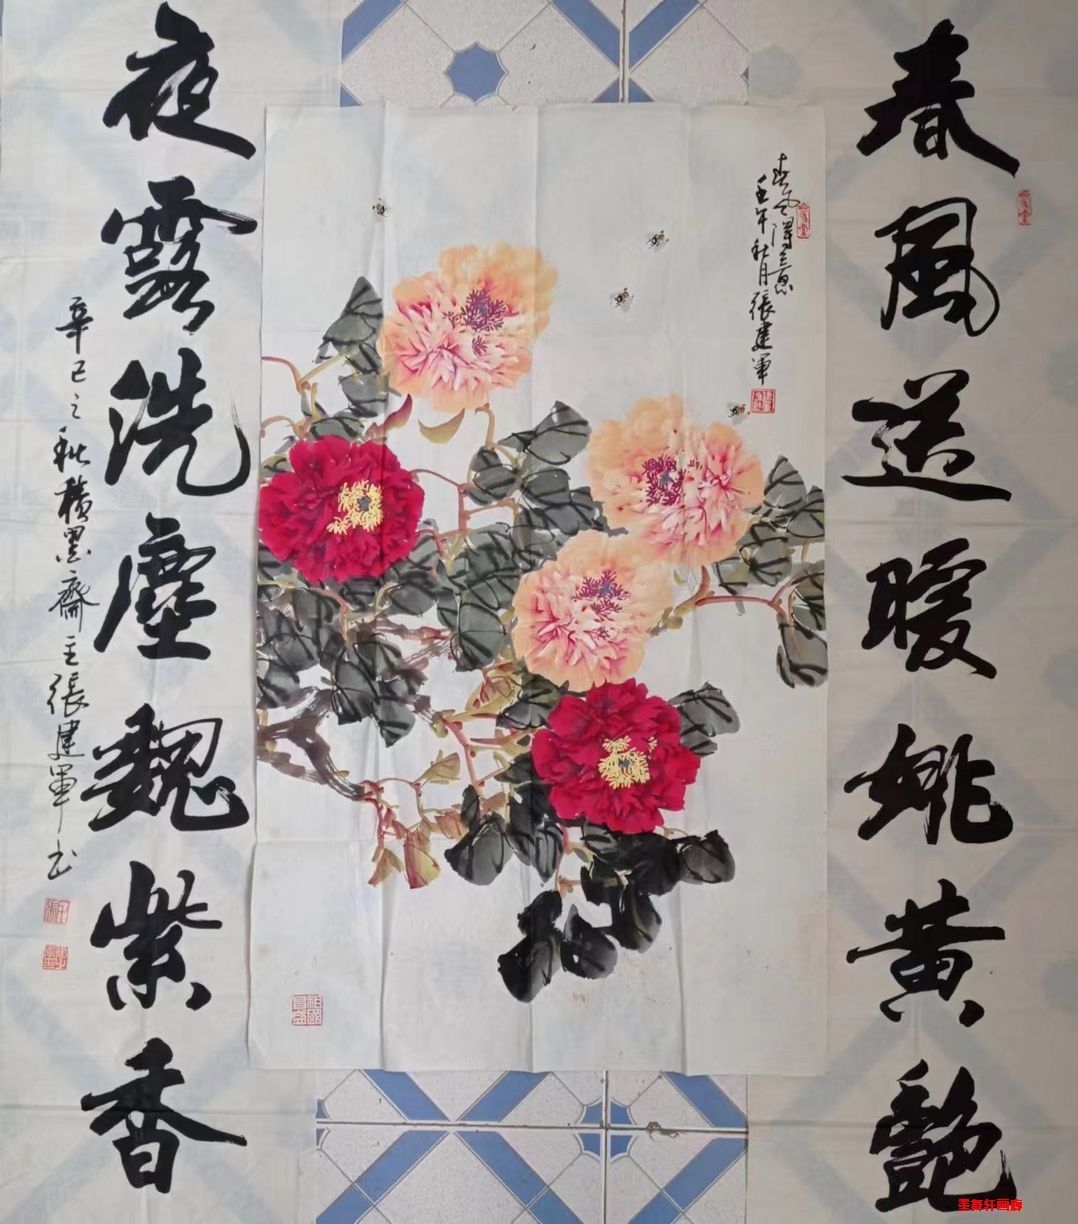 春風送暖姚黄艷
春風得意
壬午秋月張建軍
夜露洗塵魏紫香
辛巳之秋積墨齋主張建軍书
墨舞轩画廊